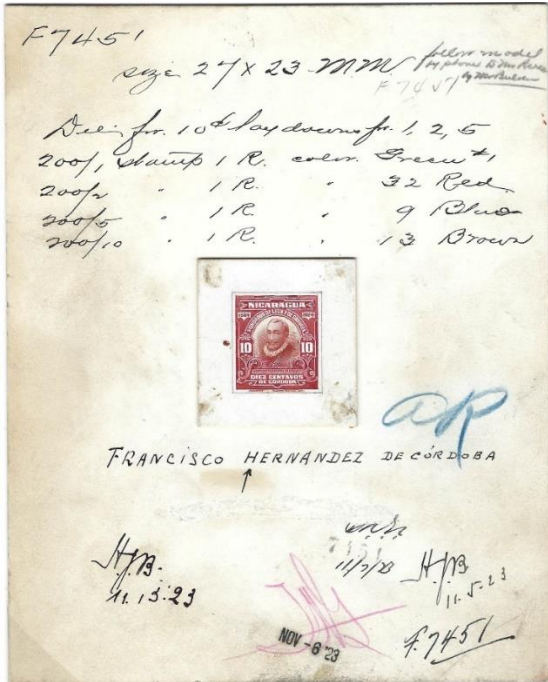 F7451
size 27 x 23 MM
follow model
by phone to Mr
by Mr
F 7451
Die for 10¢ lay downs for 1, 2, 5
200/1, stamp 1 R. color. Green #1
200/2 " 1 R. " 32 Red
200/5 " 1 R. " 9 Blue
200/10 " 1 R. " 13 Brown
NICARAGUA
1524 1924
10 10
DIEZ CENTAVOS
DE CÓRDOBA
AR
FRANCISCO HERNANDEZ DE CÓRDOBA
↑
7451
11/7/23
H.J.B.
11.13.23
H.J.B
11.5.23
NOV -6 '23
F.7451